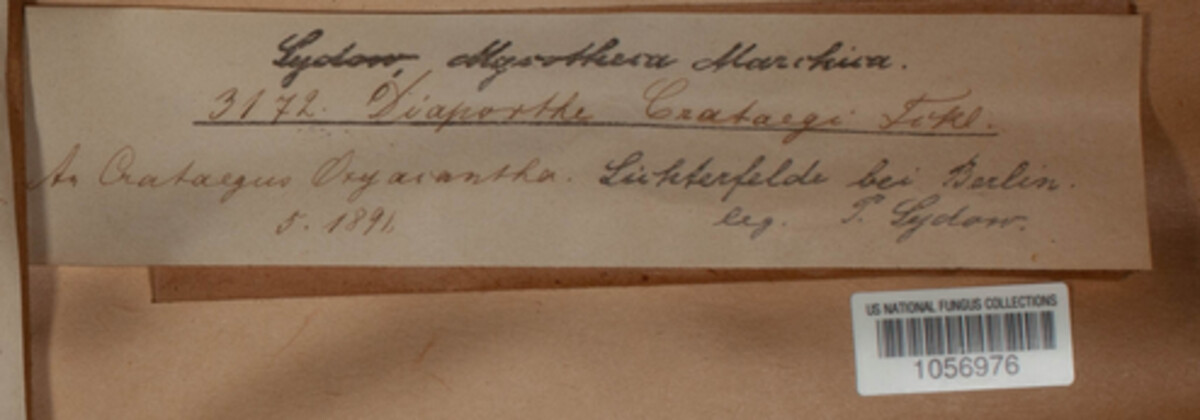 Sydow, Mycotheca Marchica.
3172. Diaporthe Crataegi Fckl.
An Crataegus Oxyacantha. Lichterfelde bei Berlin.
5. 1891. leg. P. Sydow.
US NATIONAL FUNGUS COLLECTIONS
1056976